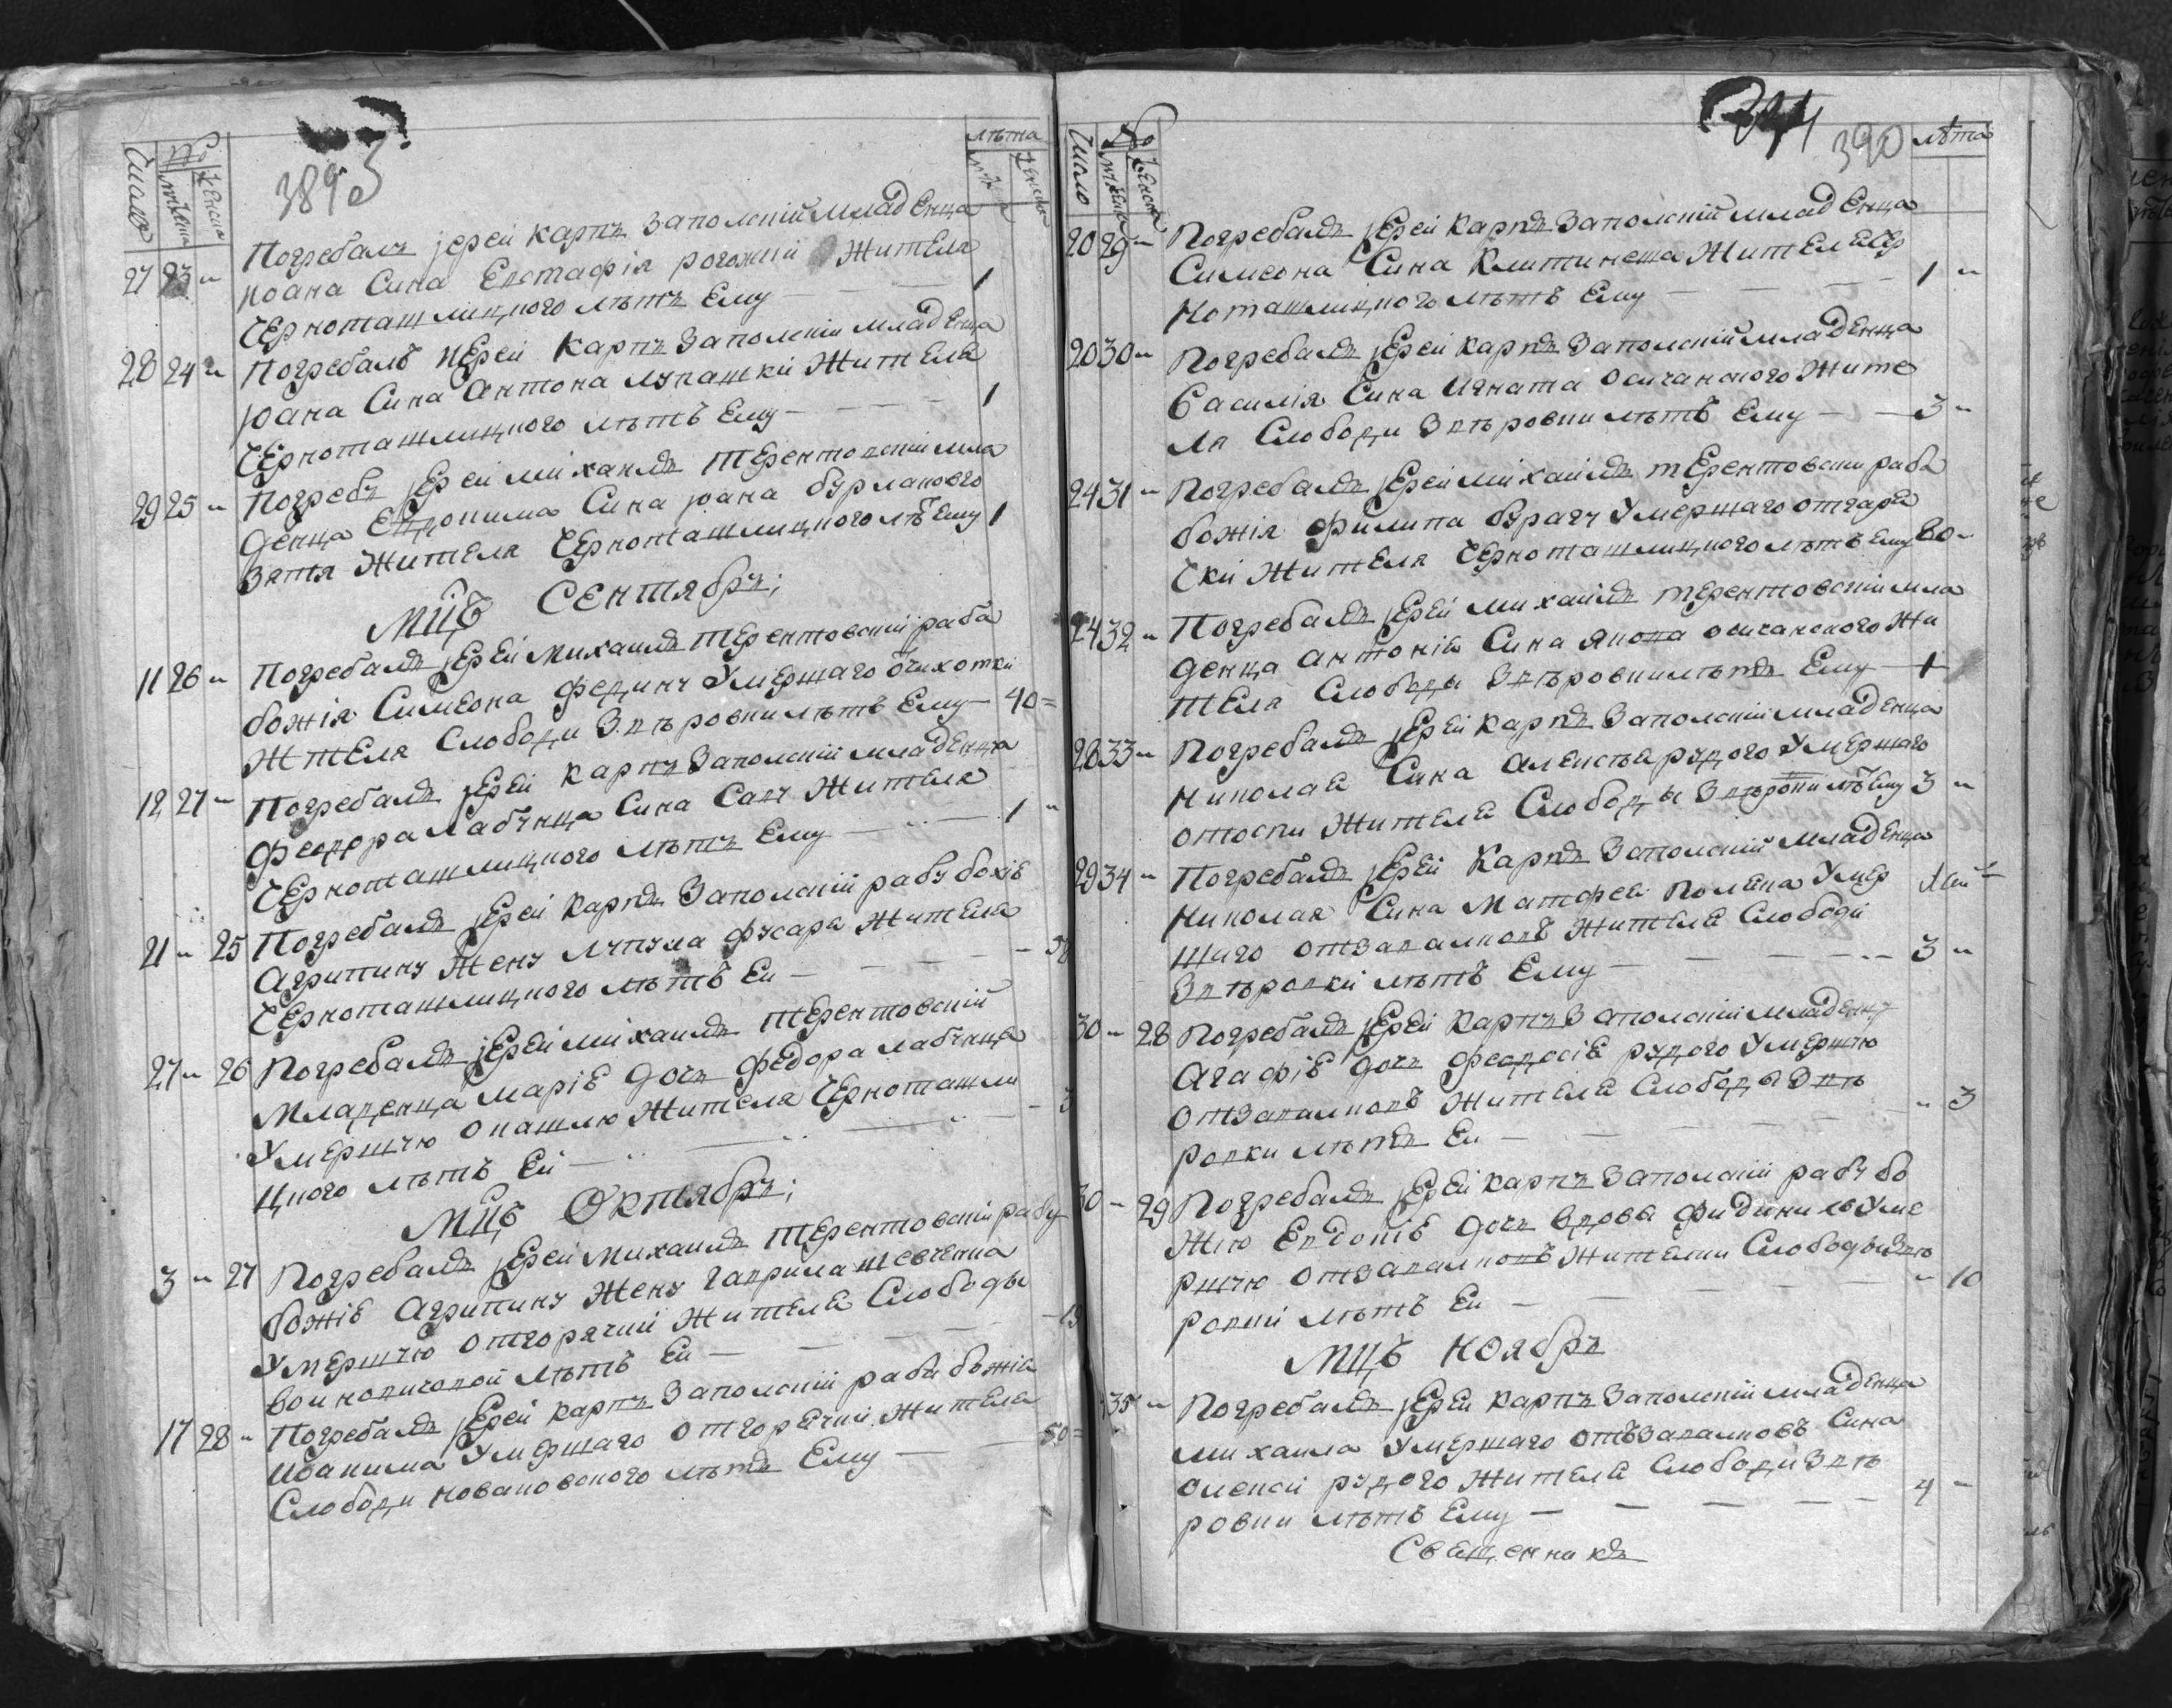 389
Число
№
мужеска
женска
лѣта
27 23 "
Погребалъ јерей Карпъ Заполскій младенца
Иоана Сина Евстафія рогожкій Жителя
Черноташлицкого лѣтъ Ему — 1
28 24 "
Погребалъ Иерей Карпъ Заполскій младенца
Иоана Сина Антона лупашкій Жителя
Черноташлицкого лѣтъ Ему — 1
29 25 "
Погребъ јерей михаилъ терентовскій мла
денца Сина јоана бурлакового
Зятя Жителя Черноташлицкого лѣ Ему 1
Мцъ Сентябръ;
11 26 "
Погребалъ јерей Михаилъ терентовскій раба
божія Симеона Умершаго
Жтеля Слободи Звѣровки лѣтъ Ему — 40 =
12 27 "
Погребалъ јерей Карпъ Заполскій младенца
Феодора Сина Савы Жителя
Черноташлицкого лѣтъ Ему — 1 "
21 " 25
Погребалъ јерей Карпъ Заполскій рабу божіе
Агрипину Жену Лупула фусара Жителя
Черноташлицкого лѣтъ Еи —
27 " 26
Погребалъ јерей михаилъ терентовскій
Младенца Маріе дочъ Федора
Умершую Жителя Черноташли
цкого лѣтъ Ей — 3
Мцъ Октябръ;
3 " 27
Погребалъ јерей Михаилъ терентовскій рабу
божіе Агрипину Жену гаврила шевченка
Умершую отгорячки Жителя Слободы
лѣтъ Еи —
17 28 "
Погребалъ јерей Карпъ Заполскій раба божія
Иоакима Умершаго отгорячки Жителя
Слободи лѣтъ Ему — 50 =
390
Число
№
мужеска
женска
лѣта
20 29 "
Погребалъ јерей Карпъ Заполскій младенца
Симеона Сина Жителя Чер
ноташлицкого лѣтъ Ему — 1 "
20 30 "
Погребалъ јерей Карпъ Заполскій младенца
Василія Сина Игната Осичанского Жите
ля Слободи Звѣровки лѣтъ Ему — 3 "
24 31 "
Погребалъ јерей михаилъ терентовски раба
божія Филипа Умершаго отгаря
чки Жителя Черноташлицкого лѣтъ Ему 80 "
24 32 "
Погребалъ јерей михаилъ терентовскій мла
денца антонія Сина Якова осичанского Жи
теля Слободы Звѣровки лѣтъ Ему — 1
28 33 "
Погребалъ јерей Карпъ Заполскій младенца
Николая Сина Алексѣя рудого Умершаго
отоспи Жителя Слободы Звѣровки лѣ Ему 3 "
29 34 "
Погребалъ јерей Карпъ Заполскій младенца
Николая Сина Матфея Умер
шаго отзавалковъ Жителя Слободи
Звѣровки лѣтъ Ему — 3 "
30 " 28
Погребалъ јерей Карпъ Заполскій младенцу
Агафіе дочъ Феодосія рудого Умершую
отзавалковъ Жителя Слободы Звѣ
ровки лѣтъ Еи — " 3
30 " 29
Погребалъ јерей Карпъ Заполскій рабу бо
жію Евдокіе дочъ вдовы Уме
ршую отзавалковъ Жителки Слободы Звѣ
ровкій лѣтъ Еи — " 10
Мцъ Ноябръ
35 "
Погребалъ јерей Карпъ Заполскій младенца
михаила Умершаго отъзавалковъ Сина
Олексѣи рудого Жителя Слободи Звѣ
ровки лѣтъ Ему — 4 "
Священникъ